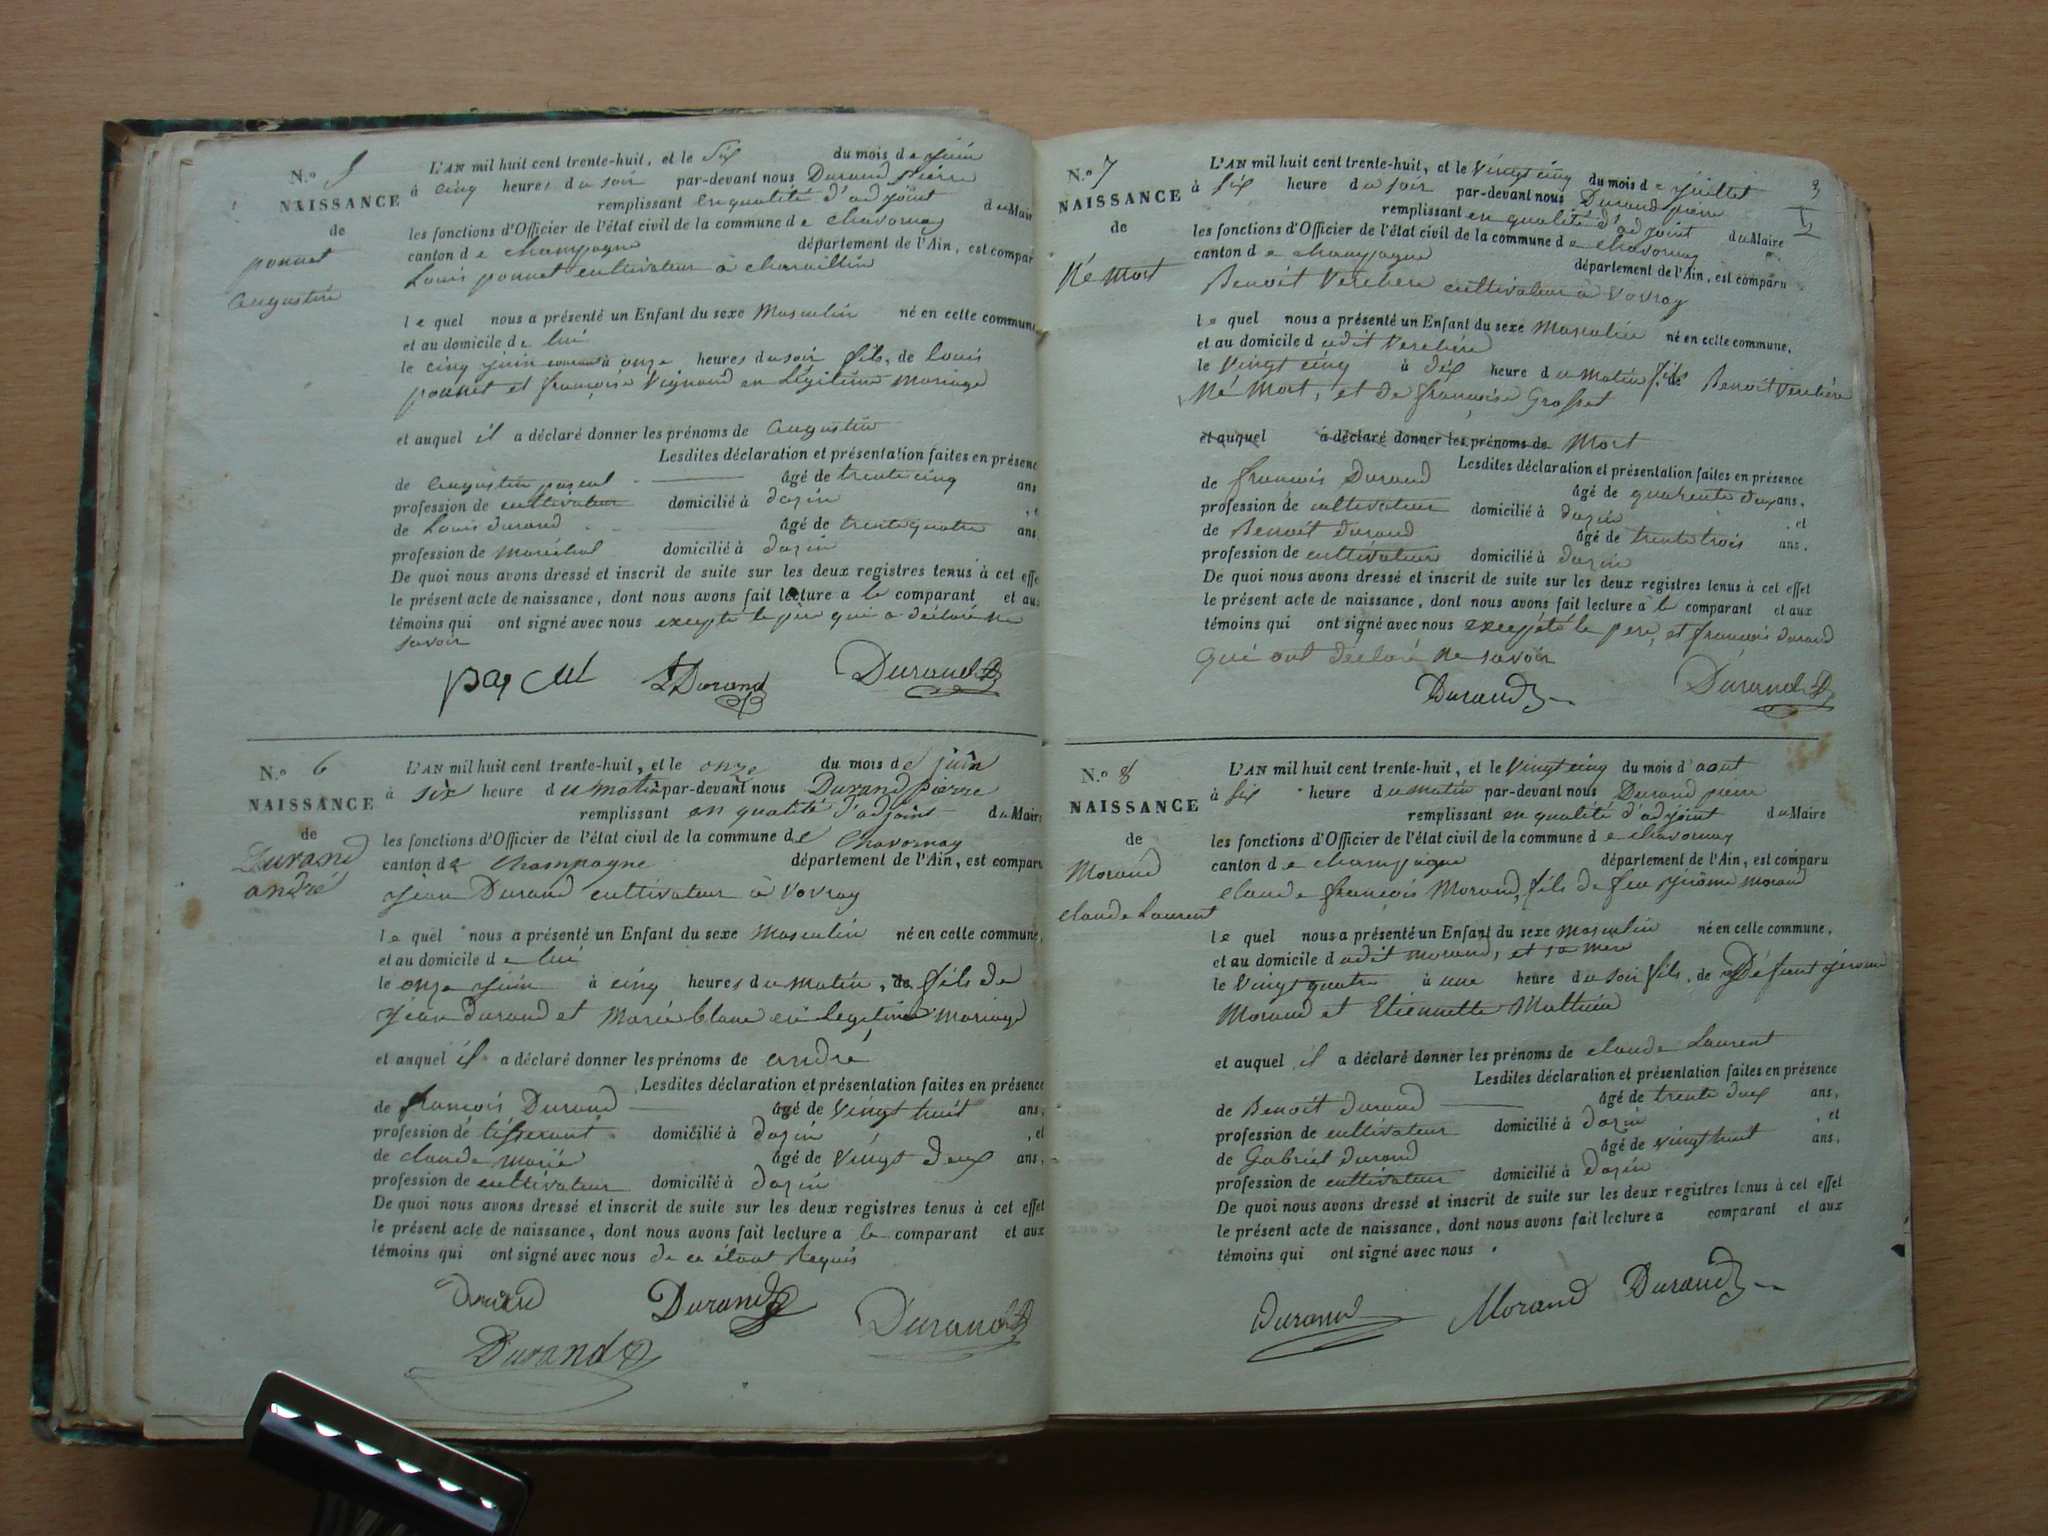 N.º 5
NAISSANCE
de
ponnet
augustin
L'AN mil huit cent trente-huit, et le six du mois de juin
à cinq heures du soir par-devant nous Durand pierre
remplissant en qualité d'adjoint du Mair
les fonctions d'Officier de l'état civil de la commune de chavornay
canton de champagne département de l'Ain, est compar
Louis ponnet cultivateur à charaillin
le quel nous a présenté un Enfant du sexe Masculin né en cette commune
et au domicile de lui
le cinq juin courant à onze heures du soir fils de louis
ponnet et françoise Vignand en Légitime mariage
et auquel il a déclaré donner les prénoms de augustin
Lesdites déclaration et présentation faites en présenc
de augustin pascal âgé de trente cinq ans
profession de cultivateur domicilié à dazin
de Louis durand âgé de trente quatre ans
profession de maréchal domicilié à dazin
De quoi nous avons dressé et inscrit de suite sur les deux registres tenus à cet effe
le présent acte de naissance, dont nous avons fait lecture a le comparant et au
témoins qui ont signé avec nous excepté le père qui a déclaré ne
savoir
L Durand Durand
N.º 6
NAISSANCE
de
Durand
andré
L'AN mil huit cent trente-huit, et le onze du mois de juin
à six heure du matin par-devant nous Durand pierre
remplissant en qualité d'adjoint du Maire
les fonctions d'Officier de l'état civil de la commune de Chavornay
canton de Champagne département de l'Ain, est comparu
jean Durand cultivateur à Vovray
le quel nous a présenté un Enfant du sexe Masculin né en cette commune,
et au domicile de lui
le onze juin à cinq heures du matin, de fils de
jean durand et marie blanc en légitime mariage
et auquel il a déclaré donner les prénoms de andré
Lesdites déclaration et présentation faites en présence
de françois Durand âgé de Vingt huit ans,
profession de tisserant domicilié à dazin , et
de claude marie âgé de Vingt deux ans,
profession de cultivateur domicilié à dazin
De quoi nous avons dressé et inscrit de suite sur les deux registres tenus à cet effet
le présent acte de naissance, dont nous avons fait lecture a le comparant et aux
témoins qui ont signé avec nous de ce étant Requis
Durand Durand Durand
Durand
3
N.º 7
NAISSANCE
de
Né Mort
L'AN mil huit cent trente-huit, et le Vingt cinq du mois de juillet
à six heure du soir par-devant nous Durand pierre
remplissant en qualité d'adjoint du Maire
les fonctions d'Officier de l'état civil de la commune de chavornay
canton de champagne département de l'Ain, est comparu
Benoit Verchère cultivateur à Vovray
le quel nous a présenté un Enfant du sexe Masculin né en cette commune,
et au domicile dudit Verchère
le Vingt cinq à dix heure du matin fils de Benoit Verchère
Né Mort, et de françoise Grosset
et auquel a déclaré donner les prénoms de Mort
Lesdites déclaration et présentation faites en présence
de françois Durand âgé de quarente deux ans,
profession de cultivateur domicilié à dazin , et
de Benoit durand âgé de trente trois ans,
profession de cultivateur domicilié à dazin
De quoi nous avons dressé et inscrit de suite sur les deux registres tenus à cet effet
le présent acte de naissance, dont nous avons fait lecture a le comparant et aux
témoins qui ont signé avec nous excepté le pere, et françois durand
qui ont déclaré ne savoir
Durand Durand
N.º 8
NAISSANCE
de
Morand
claude Laurent
L'AN mil huit cent trente-huit, et le Vingt cinq du mois d'aout
à six heure du matin par-devant nous Durand pierre
remplissant en qualité d'adjoint du Maire
les fonctions d'Officier de l'état civil de la commune de chavornay
canton de champagne département de l'Ain, est comparu
claude françois Morand, fils de feu jérôme morand
le quel nous a présenté un Enfant du sexe masculin né en cette commune,
et au domicile dudit morand, et sa mere
le Vingt quatre à une heure du soir fils de Défunt jérome
Morand et Etiennette Mathieu
et auquel il a déclaré donner les prénoms de claude Laurent
Lesdites déclaration et présentation faites en présence
de Benoit durand âgé de trente deux ans,
profession de cultivateur domicilié à dazin , et
de Gabriel durand âgé de vingt huit ans,
profession de cultivateur domicilié à dazin
De quoi nous avons dressé et inscrit de suite sur les deux registres tenus à cet effet
le présent acte de naissance, dont nous avons fait lecture a comparant et aux
témoins qui ont signé avec nous .
Durand Morand Durand